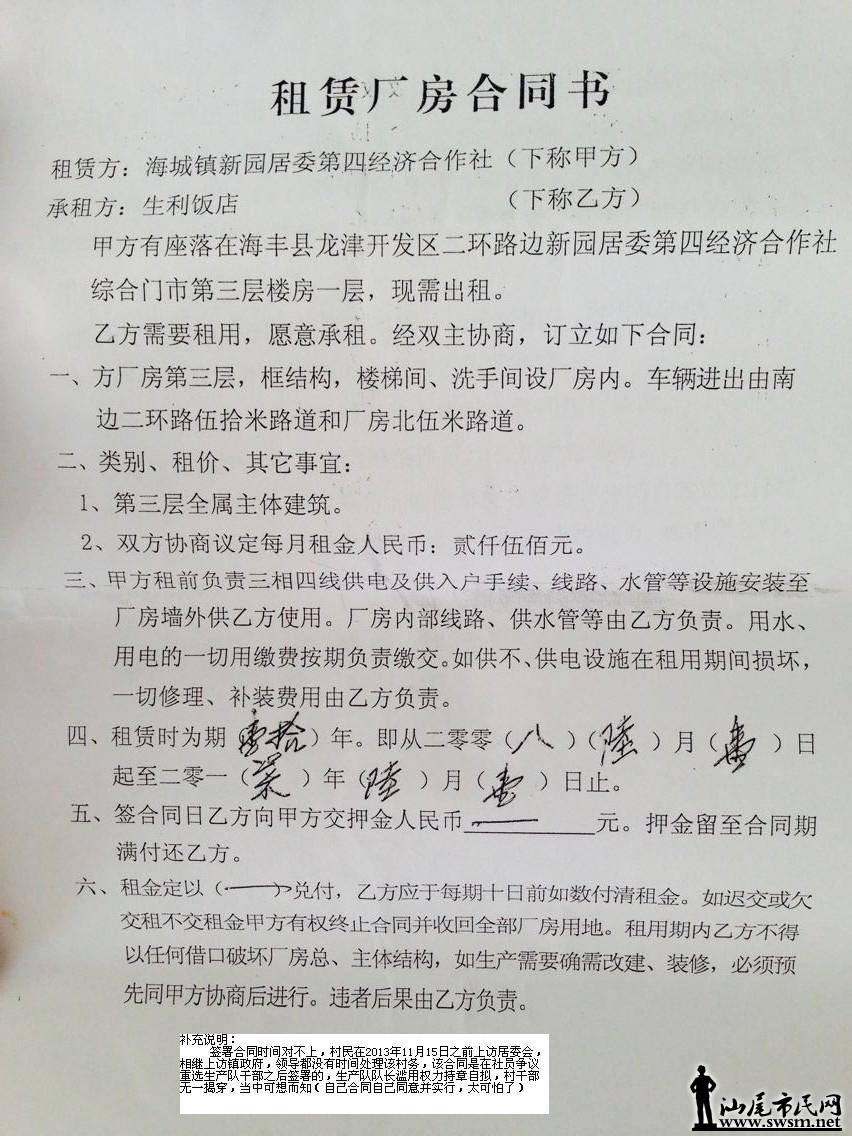 租赁厂房合同书
租赁方：海城镇新园居委第四经济合作社（下称甲方）
承租方：生利饭店（下称乙方）
甲方有座落在海丰县龙津开发区二环路边新园居委第四经济合作社
综合门市第三层楼房一层，现需出租。
乙方需要租用，愿意承租。经双主协商，订立如下合同：
一、方厂房第三层，框结构，楼梯间、洗手间设厂房内。车辆进出由南
边二环路伍拾米路道和厂房北伍米路道。
二、类别、租价、其它事宜：
1、第三层全属主体建筑。
2、双方协商议定每月租金人民币：贰仟伍佰元。
三、甲方租前负责三相四线供电及供入户手续、线路、水管等设施安装至
厂房墙外供乙方使用。厂房内部线路、供水管等由乙方负责。用水、
用电的一切用缴费按期负责缴交。如供不、供电设施在租用期间损坏，
一切修理、补装费用由乙方负责。
四、租赁时为期（壹拾）年。即从二零零（八）（陆）月（壹）日
起至二零一（柒）年（陆）月（壹）日止。
五、签合同日乙方向甲方交押金人民币 元。押金留至合同期
满付还乙方。
六、租金定以（—）兑付，乙方应于每期十日前如数付清租金。如迟交或欠
交租不交租金甲方有权终止合同并收回全部厂房用地。租用期内乙方不得
以任何借口破坏厂房总、主体结构，如生产需要确需改建、装修，必须预
先同甲方协商后进行。违者后果由乙方负责。
补充说明：
签署合同时间对不上，村民在2013年11月15日之前上访居委会，
相继上访镇政府，领导都没有时间处理该村务，该合同是在社员争议
重选生产队干部之后签署的，生产队队长滥用权力持章自拟，村干部
无一揭穿，当中可想而知（自己合同自己同意并实行，太可怕了）
汕尾市民网
www.swsm.net